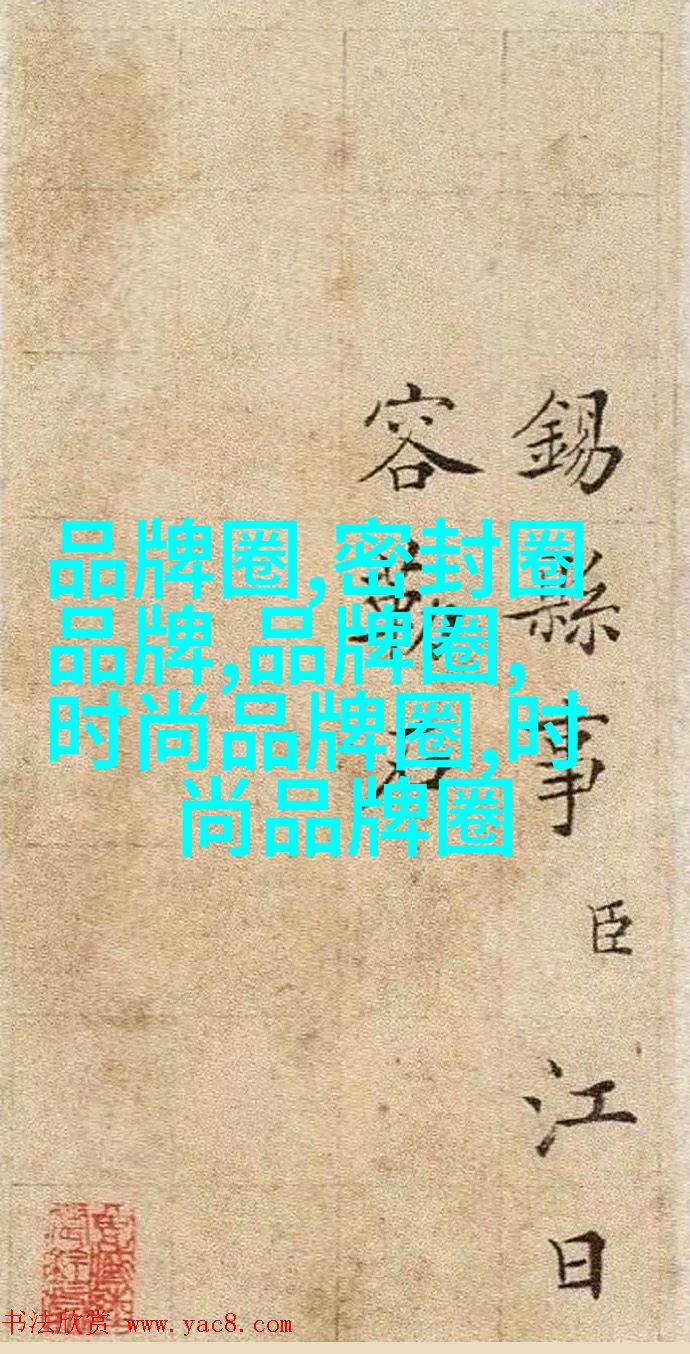 品牌圈,密封圈
品牌,品牌圈,
时尚品牌圈,时
尚品牌圈
锡縣事臣江日
容勒石
书法欣赏 www.yac8.com